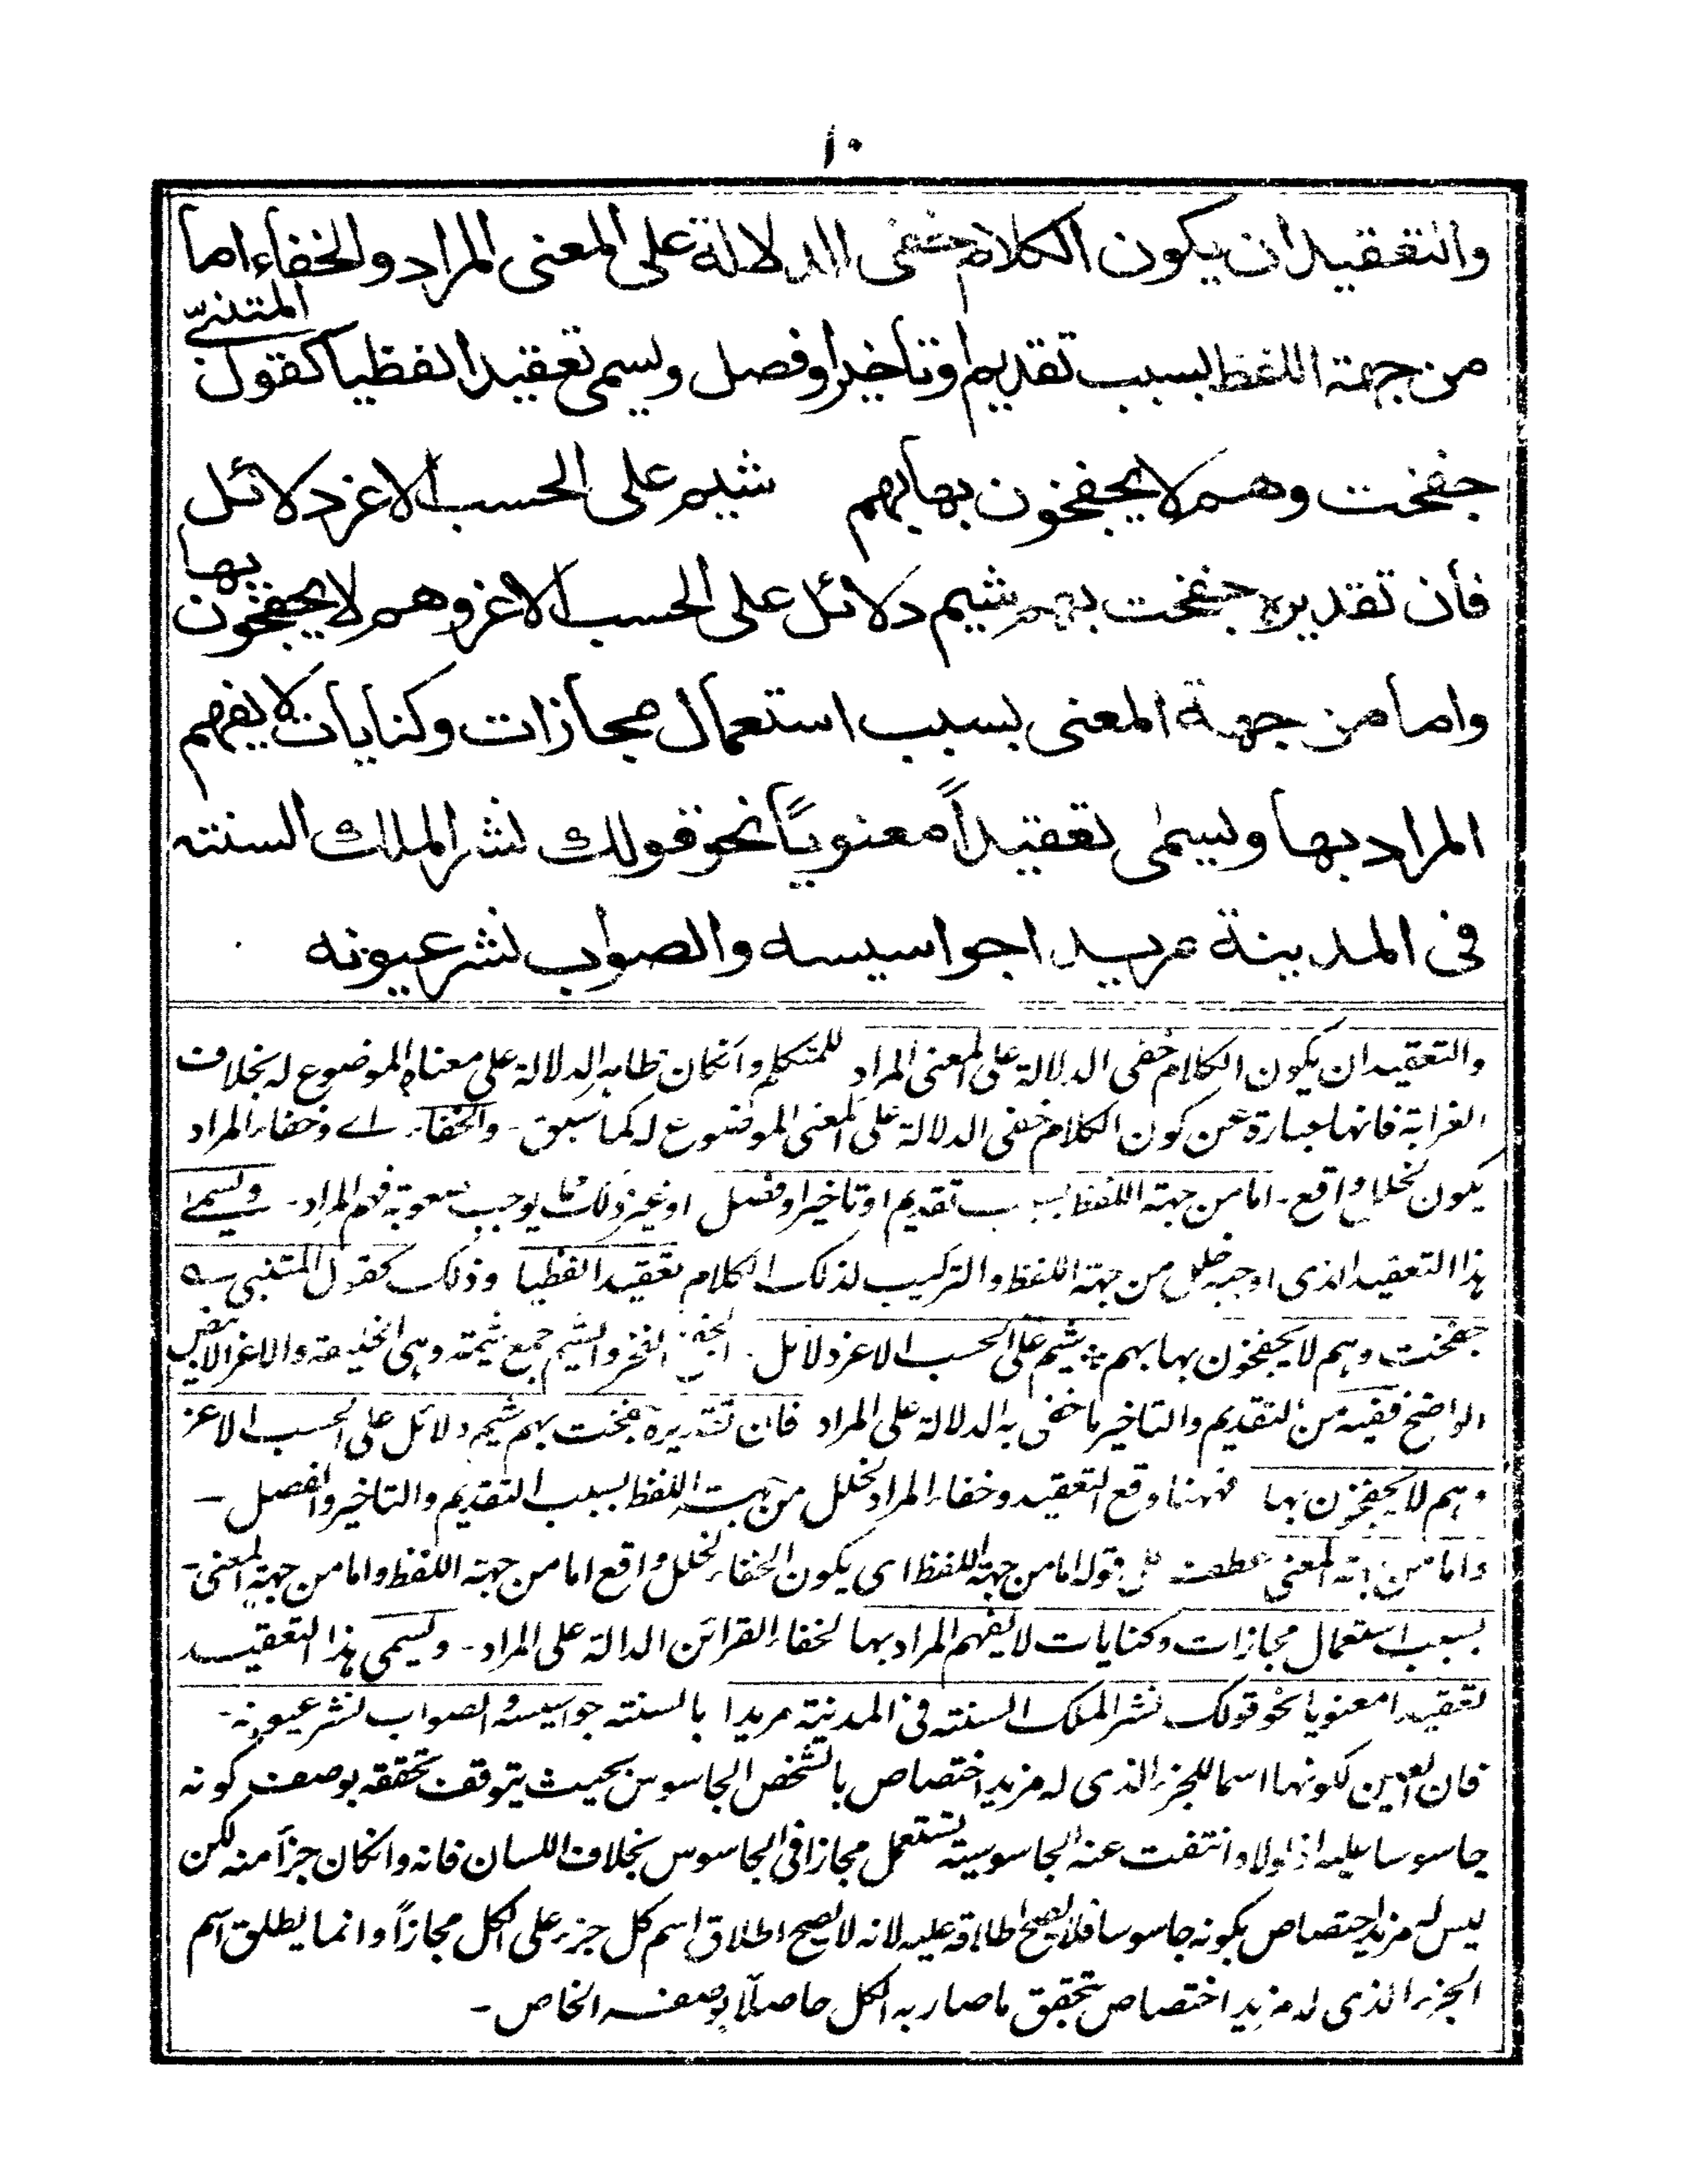 ١٠
والتعقيد ان يكون الكلام خفى الدلالة على المعنى المراد والخفاء اما
من جهة اللفظ بسبب تقديم او تاخير او فصل ويسمى تعقيدا لفظيا كقول المتنبّي
جفخت وهم لا يجفخون بها بهم شيم على الحسب الاغر دلائل
فان تقديره جفخت بهم شيم دلائل على الحسب الاغر وهم لا يجفخون بها
واما من جهة المعنى بسبب استعمال مجازات وكنايات لا يفهم
المراد بها ويسمٰى تعقيداً معنوياً نحو قولك نشر الملك السنته
فى المدينة مريدا جواسيسه والصواب نشر عيونه
والتعقيد ان يكون الكلام خفى الدلالة على المعنى المراد للمتكلم وانكان ظاهر الدلالة على معناه الموضوع له بخلاف
الغرابة فانها عبارة عن كون الكلام خفى الدلالة على المعنى الموضوع له كما سبق - والخفاء اے وخفاء المراد
يكون لخلل واقع - اما من جهة اللفظ بسبب تقديم او تاخير او فصل او غير ذلك مما يوجب صعوبة فهم المراد - ويسمے
هذا التعقيد الذى اوجبه خلل من جهة اللفظ والتركيب لذلك الكلام تعقيدا لفظيا وذلك كقول المتنبى ــه
جفخت وهم لا يجفخون بها بهم ؞ شيم على الحسب الاغر دلائل - الجفخ الفخر والشيم جمع شيمة وهى الخليقة والاغر الابيض
الواضح ففيه من التقديم والتاخير ما خفى به الدلالة على المراد فان تقديره جفخت بهم شيم دلائل على الحسب الاغر
وهم لا يجفخون بها فههنا وقع التعقيد وخفاء المراد لخلل من جهة اللفظ بسبب التقديم والتاخير والفصل -
واما من جهة المعنى عطف على قوله اما من جهة اللفظ اى يكون الخفاء لخلل واقع اما من جهة اللفظ واما من جهة المعنى -
بسبب استعمال مجازات وكنايات لا يفهم المراد بها لخفاء القرائن الدالة على المراد - ويسمى هذا التعقيد
تعقيدا معنويا نحو قولك نشر الملك السنته فى المدينة مريدا بالسنته جواسيسه والصواب نشر عيونه -
فان العين لكونها اسما للجزء الذى له مزيد اختصاص بالشخص الجاسوس بحيث يتوقف تحققه بوصف كونه
جاسوسا عليه اذ لولاه انتفت عنه الجاسوسية تستعمل مجازا فى الجاسوس بخلاف اللسان فانه وانكان جزأ منه لكن
ليس له مزيد اختصاص بكونه جاسوسا فلا يصح اطلاقه عليه لانه لا يصح اطلاق اسم كل جزء على الكل مجازاً وانما يطلق اسم
الجزء الذى له مزيد اختصاص بتحقق ما صار به الكل حاصلاً بوصفه الخاص -